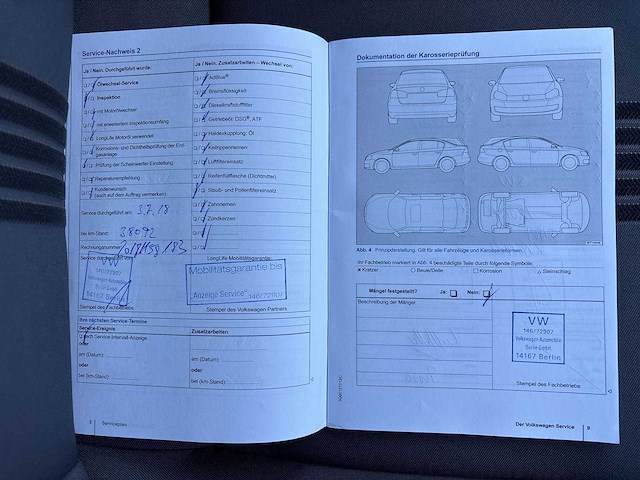 Service-Nachweis 2
Ja / Nein, Durchgeführt wurde:
Ölwechsel-Service
Inspektion
mit Motorölwechsel
mit erweitertem Inspektionsumfang
LongLife Motoröl verwendet
Korrosions- und Dichtheitsprüfung der Erdgasanlage
Prüfung der Scheinwerfer-Einstellung
Reparaturempfehlung
Kundenwunsch
(auch auf dem Auftrag vermerken)
Service durchgeführt am: 3.7.18
bei km-Stand: 38092
Rechnungsnummer:
Service durchgeführt
VW
146/72907
14167 Berlin
Stempel des Fachbetriebs
Ja / Nein, Zusatzarbeiten – Wechsel von:
AdBlue®
Bremsflüssigkeit
Dieselkraftstofffilter
Getriebeöl: DSG®, ATF
Haldexkupplung: Öl
Keilrippenriemen
Luftfiltereinsatz
Reifenfüllflasche (Dichtmittel)
Staub- und Pollenfiltereinsatz
Zahnriemen
Zündkerzen
LongLife Mobilitätsgarantie:
Mobilitätsgarantie bis
„Anzeige Service" 146/72907
Stempel des Volkswagen Partners
Ihre nächsten Service-Termine
Service-Ereignis
nach Service Intervall-Anzeige
oder
am (Datum):
oder
bei (km-Stand):
Zusatzarbeiten
am (Datum):
oder
bei (km-Stand):
Serviceplan
Dokumentation der Karosserieprüfung
Abb. 4 Prinzipdarstellung. Gilt für alle Fahrzeuge und Karosserieformen.
Ihr Fachbetrieb markiert in Abb. 4 beschädigte Teile durch folgende Symbole:
× Kratzer ○ Beule/Delle □ Korrosion △ Steinschlag
Mängel festgestellt? Ja: Nein:
Beschreibung der Mängel
VW
146/72907
Volkswagen Automobile
Berlin GmbH
14167 Berlin
Stempel des Fachbetriebs
Der Volkswagen Service 9